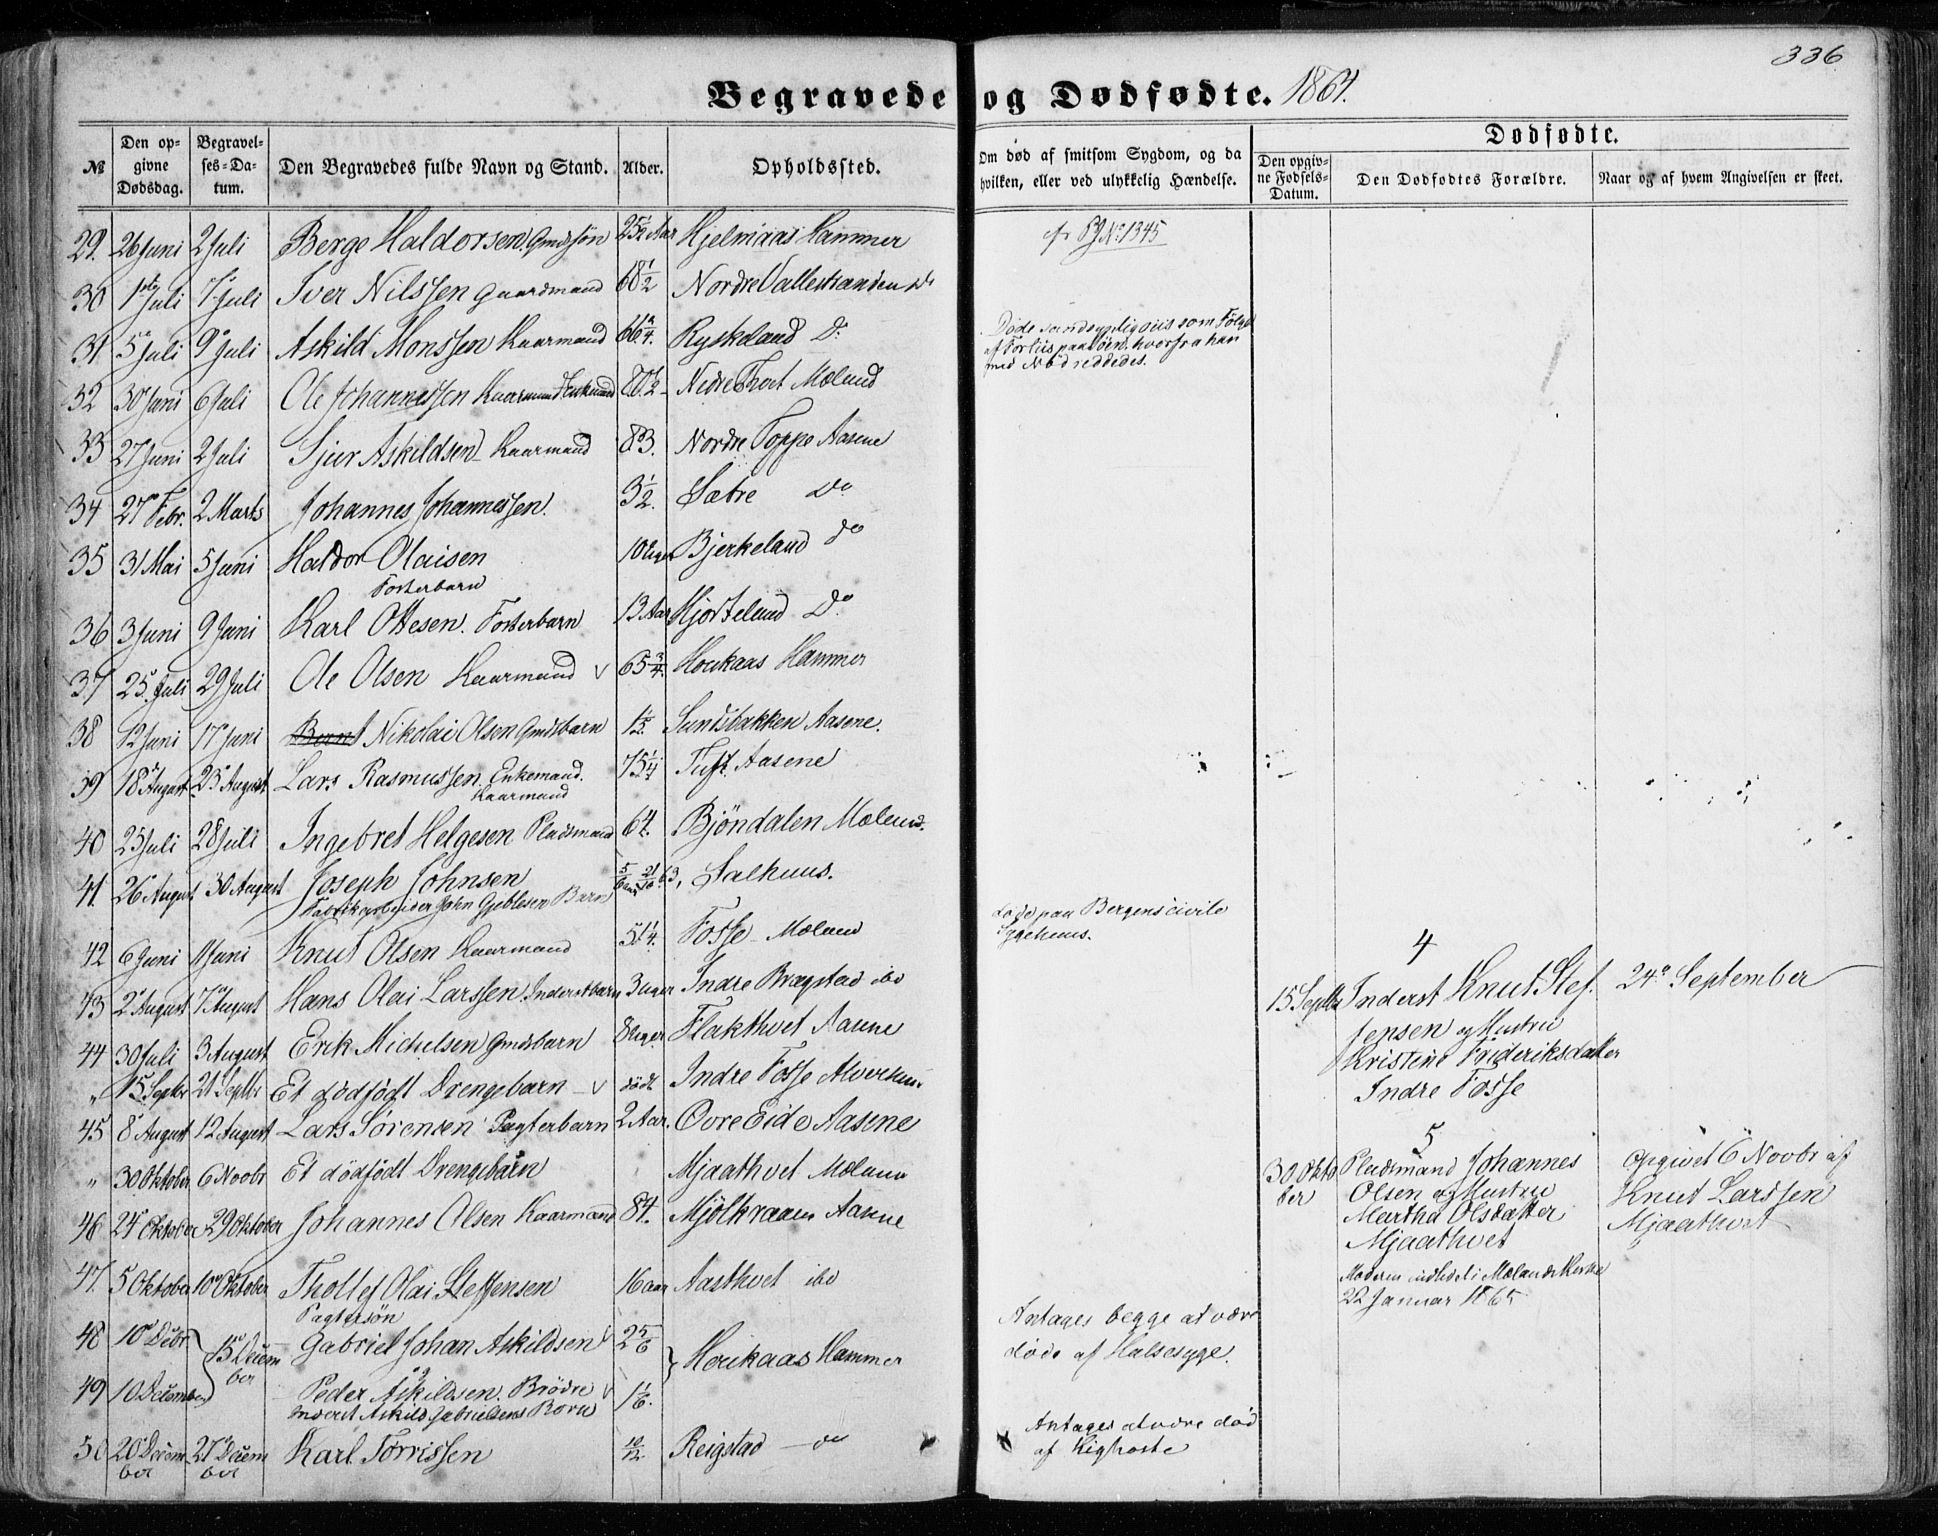 336
Begravede og Dødfødte. 1864.
№ Den opgivne Dødsdag. Begravelses-Datum. Den Begravedes fulde Navn og Stand. Alder. Opholdssted. Om død af smitsom Sygdom, og da hvilken, eller ved ulykkelig Hændelse. Dødfødte. Den opgivne Fødsels-Datum. Den Dødfødtes Forældre. Naar og af hvem Angivelsen er skeet.
29. 26 Juni 2 Juli Berge Haldorsen Gmdsøn 25½ Aar Hjelmaas Hammer № 1345
30 1 Juli 7 Juli Iver Nilssen Gaardmand 68½ Nordre Vallestranden Do
31 5 Juli 9 Juli Askild Monssen Kaarmand 66¾ Ryskeland Do
Døde sandsynligviis som Følge
af Forliis paa Søen, hvorfra han
med Nød reddedes.
32 30 Juni 6 Juli Ole Johannessen Kaarmand Enkemand 80½ Nedre Thvet Mæland
33 27 Juni 2 Juli Sjur Askildsen Kaarmand 83. Nordre Toppe Aasene
34 27 Febr. 2 Marts Johannes Johannessen 3½. Sætre Do
35 31 Mai 5 Juni Haldor Olaisen 10 Uger Bjerkeland do
Fosterbarn
36 3 Juni 9 Juni Karl Ottesen. Fosterbarn 13 Aar Hjortelund Do
37 25 Juli 29 Juli Ole Olsen Kaarmand v 65¾. Houkaas Hammer
38 12 Juni 17 Juni Bernt Nikolai Olsen Gmdsbarn 1/5. Sundsbakken Aasene.
39 18 August 23 August Lars Rasmussen. Enkemand. 75¼ Tuft Aasene
Kaarmand
40 25 Juli 28 Juli Ingebret Helgesen Pladsmand 64. Bjöndalen Mæland.
41. 26 August 30 August Joseph Johnsen 5/6 Aar 21/10 63, Salhuus.
Fabrikarbeider John Gjeblesen Barn
42 6 Juni 11 Juni Knut Olsen Kaarmand 51¼. Fosse Mæland
døde paa Bergens civile
Sygehuus.
43 2 August 7 August Hans Olai Larssen Inderstbarn 3 Uger Indre Bragstad ibd
44 30 Juli 3 August Erik Michelsen Gmdsbarn 8 Uger Flakthvet Aasene
" 15 Septbr 21 Septbr Et dödfödt Drengebarn v dödt Indre Fosse
4
15 Septbr Inderst Knut Stef. 24 September
Jensen og Hustru
Kristine Frideriksdatter
Indre Fosse
45 8 August 12 August Lars Sørensen Pagterbarn 2 Aar. Övre Eide Aasene
" 30 Oktober 6 Novbr Et dödfödt Drengebarn Mjaathvet Mæland
5
30 Oktober Pladsmand Johannes Opgivet 6 Novbr af
Olsen og Hustru Knut Larssen
Martha Olsdatter Mjaathvet
Mjaathvet
Moderen indledet i Mælands Kirke
22 Januar 1865
46 24 Oktober 29 Oktober Johannes Olsen Kaarmand 84. Mjölkraaen Aasene
47. 5 Oktober 10 Oktober Thollef Olai Steffensen 16 aar Aasthvet ibd
Pagtersön
48 10 Decbr 15 December Gabriel Johan Askildsen v 2 5/6 Houkaas Hammer
Antages begge at være
døde af Halsesyge.
og
49 10 December Peder Askildsen. Brödre v 1 1/6.
Inderst Askild Gabrielsens Börn
50 20 December 27 December Karl Torrissen 10/12. Reigstad do
Antages at være död
af Kighoste